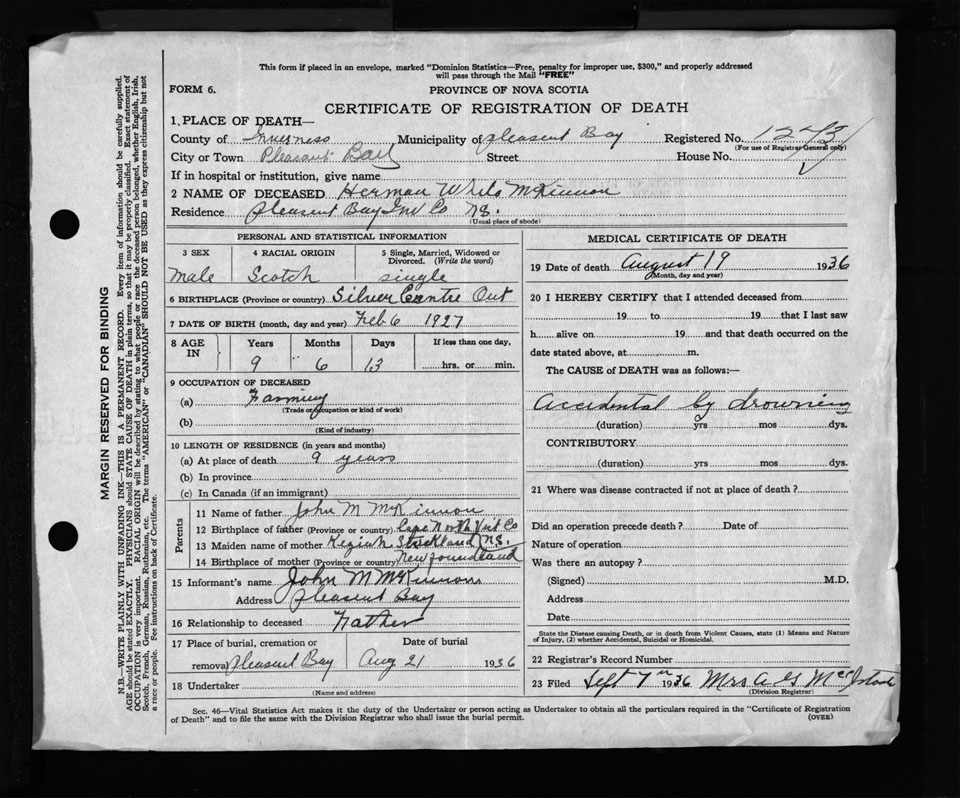 This form if placed in an envelope, marked "Dominion Statistics—Free, penalty for improper use, $300," and properly addressed
will pass through the Mail "FREE"
FORM 6.
PROVINCE OF NOVA SCOTIA
CERTIFICATE OF REGISTRATION OF DEATH
1. PLACE OF DEATH—
County of Inverness Municipality of pleasent Bay Registered No. 1273
(For use of Registrar General only)
City or Town Pleasant Bay Street House No.
If in hospital or institution, give name
2 NAME OF DECEASED Herman McKinnon
Residence pleasent Bay Inv Co NS.
(Usual place of abode)
PERSONAL AND STATISTICAL INFORMATION
3 SEX 4 RACIAL ORIGIN 5 Single, Married, Widowed or
Divorced. (Write the word)
male Scotch single
6 BIRTHPLACE (Province or country) Silver Centre Ont
7 DATE OF BIRTH (month, day and year) Feb 6 1927
8 AGE IN Years Months Days If less than one day,
9 6 13 hrs. or min.
9 OCCUPATION OF DECEASED
(a) Farming
(Trade or occupation or kind of work)
(b)
(Kind of industry)
10 LENGTH OF RESIDENCE (in years and months)
(a) At place of death 9 years
(b) In province
(c) In Canada (if an immigrant)
Parents
11 Name of father John M McKinnon
12 Birthplace of father (Province or country) Cape North Co
NS.
13 Maiden name of mother
14 Birthplace of mother (Province or country) Newfoundland
15 Informant's name John M McKinnon
Address pleasent Bay
16 Relationship to deceased Father
17 Place of burial, cremation or Date of burial
removal pleasent Bay Aug 21 1936
18 Undertaker
(Name and address)
MEDICAL CERTIFICATE OF DEATH
19 Date of death August 19 1936
(Month, day and year)
20 I HEREBY CERTIFY that I attended deceased from
19 to 19 that I last saw
h alive on 19 and that death occurred on the
date stated above, at m.
The CAUSE of DEATH was as follows:—
Accidental by drowning
(duration) yrs mos dys.
CONTRIBUTORY
(duration) yrs mos dys.
21 Where was disease contracted if not at place of death?
Did an operation precede death? Date of
Nature of operation
Was there an autopsy?
(Signed) M.D.
Address
Date
State the Disease causing Death, or in death from Violent Causes, state (1) Means and Nature
of Injury, (2) whether Accidental, Suicidal or Homicidal.
22 Registrar's Record Number
23 Filed Sept 7th 1936 Mrs A G
(Division Registrar)
Sec. 46—Vital Statistics Act makes it the duty of the Undertaker or person acting as Undertaker to obtain all the particulars required in the "Certificate of Registration
of Death" and to file the same with the Division Registrar who shall issue the burial permit. (OVER)
MARGIN RESERVED FOR BINDING
N.B.—WRITE PLAINLY WITH UNFADING INK—THIS IS A PERMANENT RECORD. Every item of information should be carefully supplied.
AGE should be stated EXACTLY. PHYSICIANS should STATE CAUSE OF DEATH in plain terms, so that it may be properly classified. Exact statement of
OCCUPATION is very important. RACIAL ORIGIN will be described by stating to what people or race the deceased person belonged, whether English, Irish,
Scotch, French, German, Russian, Ruthenian, etc. The terms "AMERICAN" or "CANADIAN" SHOULD NOT BE USED as they express citizenship but not
a race or people. See instructions on back of Certificate.